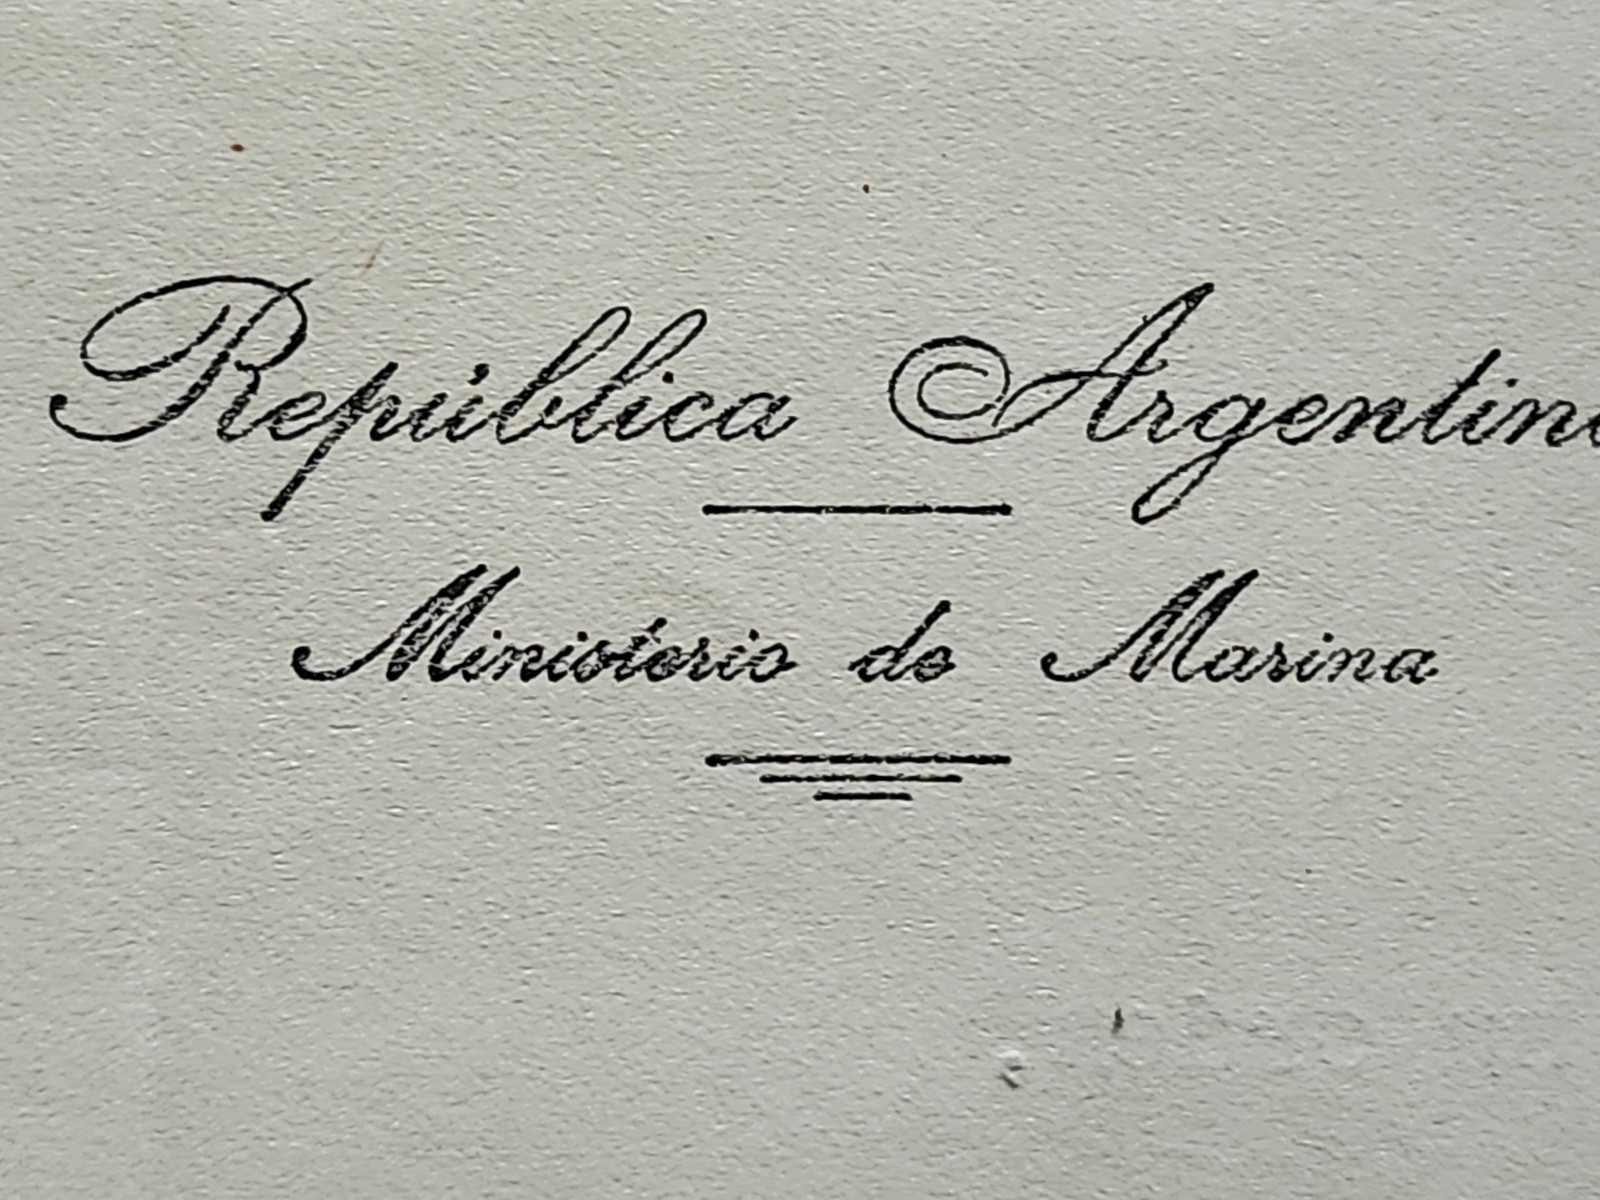 República Argentin
Ministerio de Marina